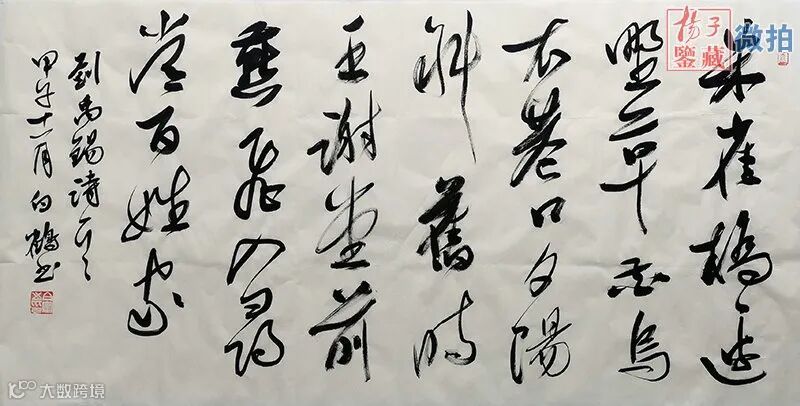 朱雀橋邊
野草花烏
衣巷口夕陽
斜舊時
王謝堂前
燕飛入尋
常百姓家
劉禹錫詩
甲午十一月白鶴書
楊子
鑒藏
微拍
大数跨境